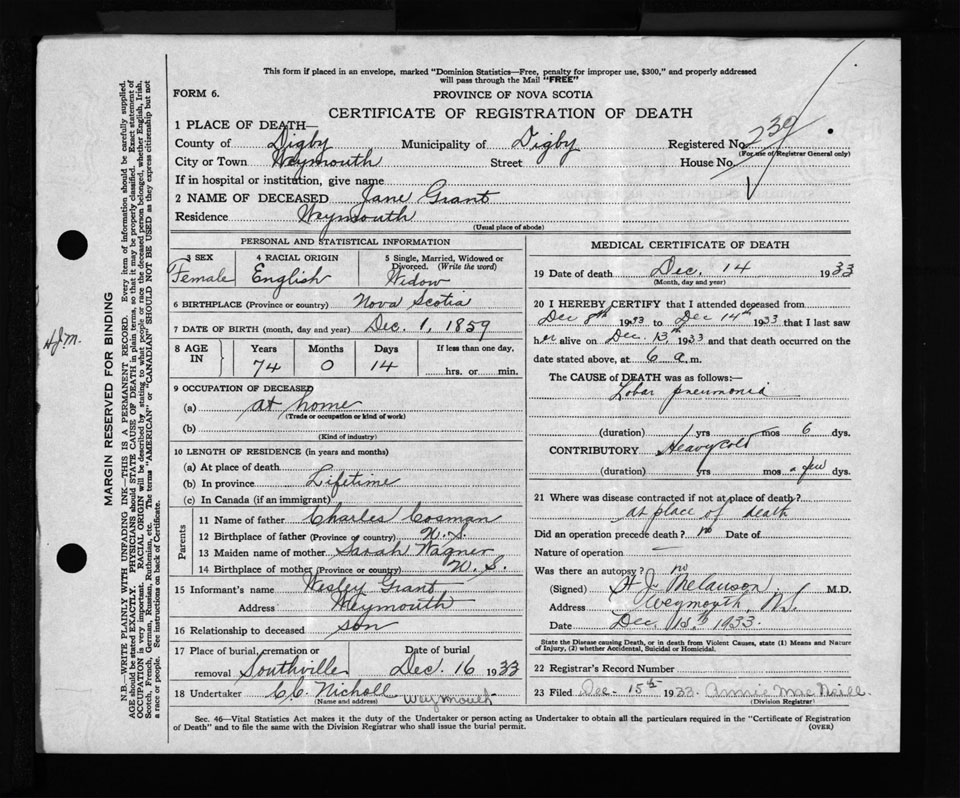 This form if placed in an envelope, marked "Dominion Statistics—Free, penalty for improper use, $300," and properly addressed
will pass through the Mail "FREE"
FORM 6.
PROVINCE OF NOVA SCOTIA
CERTIFICATE OF REGISTRATION OF DEATH
1 PLACE OF DEATH—
County of Digby Municipality of Digby Registered No. 239
(For use of Registrar General only)
City or Town Weymouth Street House No.
If in hospital or institution, give name
2 NAME OF DECEASED Jane Grant
Residence Weymouth
(Usual place of abode)
PERSONAL AND STATISTICAL INFORMATION
3 SEX 4 RACIAL ORIGIN 5 Single, Married, Widowed or
Divorced. (Write the word)
Female English Widow
6 BIRTHPLACE (Province or country) Nova Scotia
7 DATE OF BIRTH (month, day and year) Dec. 1, 1859
8 AGE IN Years Months Days If less than one day,
74 0 14 hrs. or min.
9 OCCUPATION OF DECEASED
(a) at home
(Trade or occupation or kind of work)
(b)
(Kind of industry)
10 LENGTH OF RESIDENCE (in years and months)
(a) At place of death
(b) In province Lifetime
(c) In Canada (if an immigrant)
Parents
11 Name of father Charles Cosman
12 Birthplace of father (Province or country) N.S.
13 Maiden name of mother Sarah Wagner
14 Birthplace of mother (Province or country) N.S.
15 Informant's name Wesley Grant
Address Weymouth
16 Relationship to deceased son
17 Place of burial, cremation or Date of burial
removal Southville Dec. 16 1933
18 Undertaker C.C. Nicholl Weymouth
(Name and address)
MEDICAL CERTIFICATE OF DEATH
19 Date of death Dec. 14 1933
(Month, day and year)
20 I HEREBY CERTIFY that I attended deceased from
Dec 8th 1933 to Dec 14th 1933 that I last saw
her alive on Dec. 13th 1933 and that death occurred on the
date stated above, at 6 a.m.
The CAUSE of DEATH was as follows:—
Lobar pneumonia
(duration) yrs mos 6 dys.
CONTRIBUTORY Heavy cold
(duration) yrs mos a few dys.
21 Where was disease contracted if not at place of death?
at place of death
Did an operation precede death? no Date of
Nature of operation —
Was there an autopsy? no
(Signed) H J. Melanson M.D.
Address Weymouth, N.S.
Date Dec 1933.
State the Disease causing Death, or in death from Violent Causes, state (1) Means and Nature
of Injury, (2) whether Accidental, Suicidal or Homicidal.
22 Registrar's Record Number
23 Filed Dec - 15th 1933. Annie MacNeill.
(Division Registrar)
Sec. 46—Vital Statistics Act makes it the duty of the Undertaker or person acting as Undertaker to obtain all the particulars required in the "Certificate of Registration
of Death" and to file the same with the Division Registrar who shall issue the burial permit.
(OVER)
MARGIN RESERVED FOR BINDING
N.B.—WRITE PLAINLY WITH UNFADING INK—THIS IS A PERMANENT RECORD. Every item of information should be carefully supplied.
AGE should be stated EXACTLY. PHYSICIANS should STATE CAUSE OF DEATH in plain terms, so that it may be properly classified. Exact statement of
OCCUPATION is very important. RACIAL ORIGIN will be described by stating to what people or race the deceased person belonged, whether English, Irish,
Scotch, French, German, Russian, Ruthenian, etc. The terms "AMERICAN" or "CANADIAN" SHOULD NOT BE USED as they express citizenship but not
a race or people. See instructions on back of Certificate.